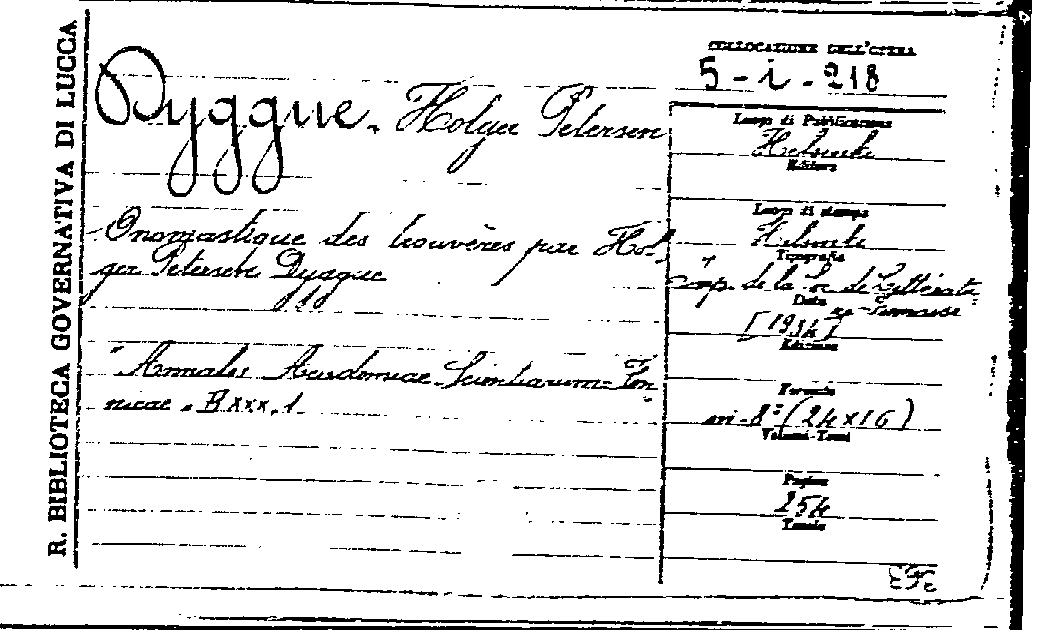 R. BIBLIOTECA GOVERNATIVA DI LUCCA
COLLOCAZIONE DELL'OPERA
5 - i - 218
Dyggue - Holger Petersen
Luogo di Pubblicazione
Helsinki
Editore
Luogo di stampa
Helsinki
Tipografia
Imp. de la Soc. de Littératu-
re Finnoise
Data
[1934]
Edizione
Formato
in-8° (24x16)
Volumi-Tomi
Pagine
254
Tavole
Onomastique des trouvères par Hol-
ger Petersen Dyggue
"Annales Academiae Scientiarum Fen-
nicae. B xxx, 1